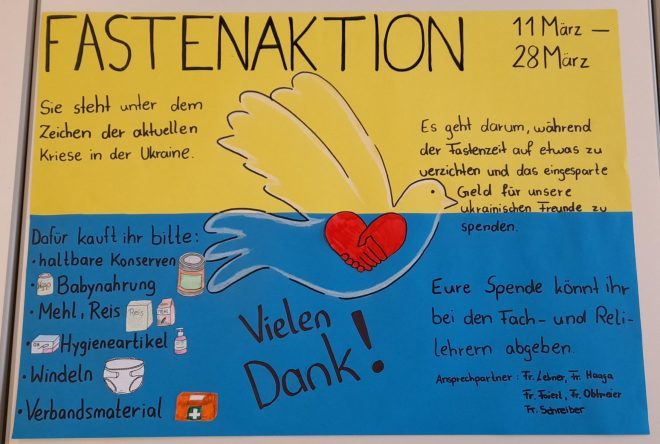 FASTENAKTION
11 März –
28 März
Sie steht unter dem
Zeichen der aktuellen
Kriese in der Ukraine.
Es geht darum, während
der Fastenzeit auf etwas zu
verzichten und das eingesparte
Geld für unsere
ukrainischen Freunde zu
spenden.
Dafür kauft ihr bitte:
• haltbare Konserven
• Babynahrung
• Mehl, Reis
Reis
• Hygieneartikel
• Windeln
• Verbandsmaterial
Vielen
Dank!
Eure Spende könnt ihr
bei den Fach- und Reli-
lehrern abgeben.
Ansprechpartner: Fr. Lehner, Fr. Haaga
Fr. Foierl, Fr. Obtmaier
Fr. Schreiber